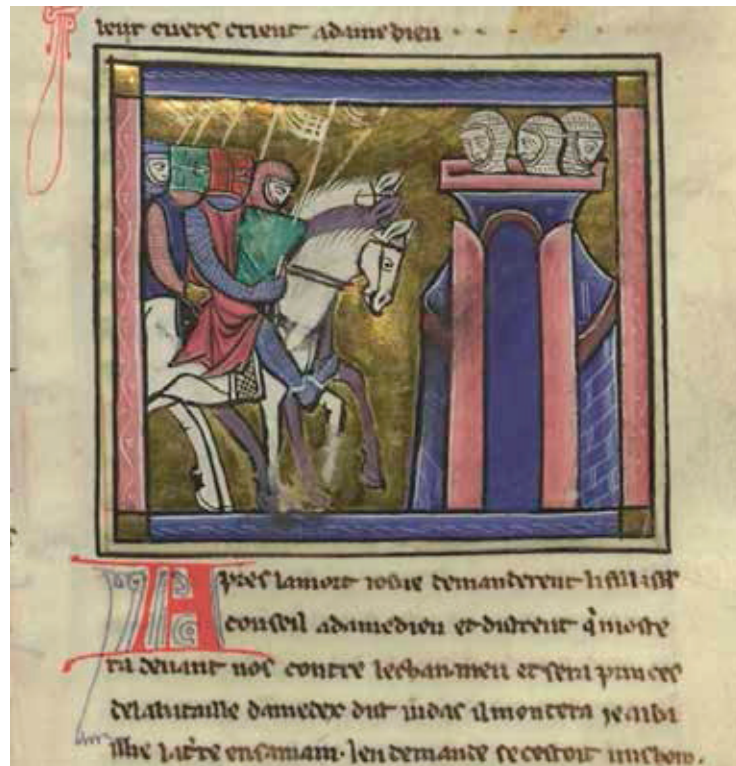 leur cuers crient adamedieu
Apres lamort iosue demanderent li fill isrl
conseil adamedieu et distrent
ra deuant nos contre et sera princes
delabataille damedex dist iudas il montera ie ai bai
llie la tre en sa main. len demande se cestoit uns hom.